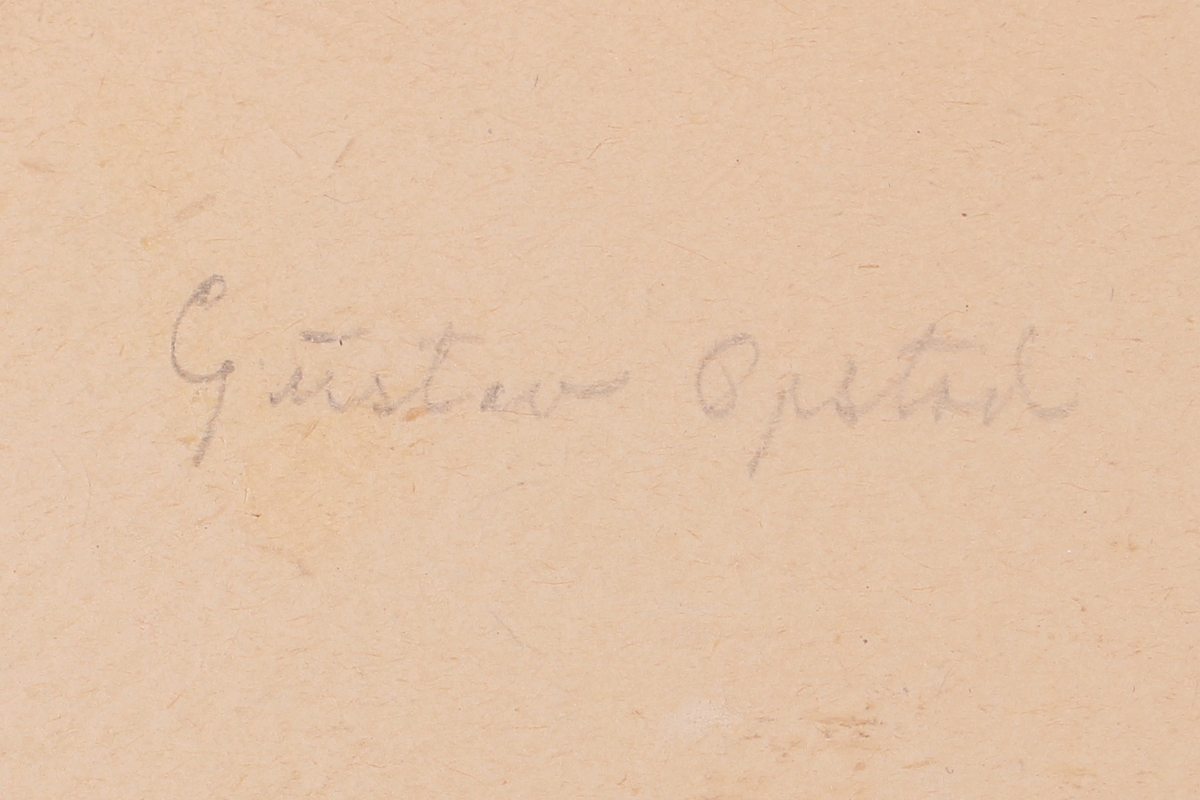 Gustav Opstad